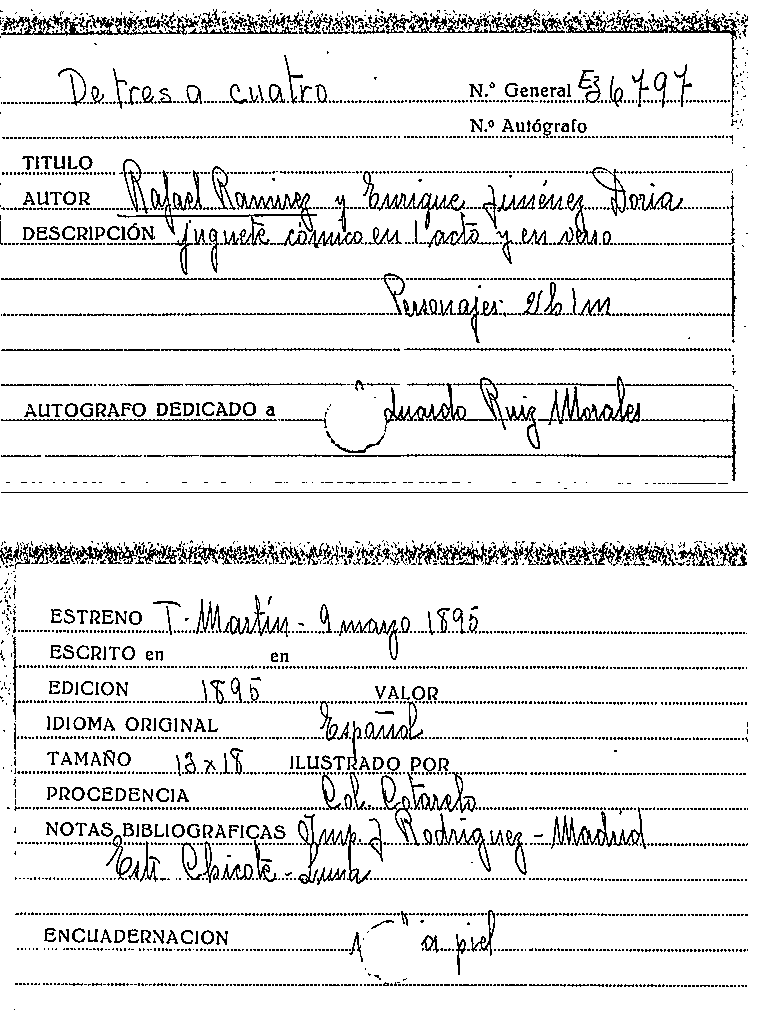 De tres a cuatro N.º General E36797
N.º Autógrafo
TITULO
AUTOR Rafael Ramirez y Enrique Jiménez Doria
DESCRIPCIÓN juguete cómico en 1 acto y en verso
Personajes: 2h 1m
AUTOGRAFO DEDICADO a Eduardo Ruiz Morales
ESTRENO T. Martín - 9 mayo 1895
ESCRITO en en
EDICION 1895 VALOR
IDIOMA ORIGINAL Español
TAMAÑO 13x18 ILUSTRADO POR
PROCEDENCIA Col. Cotarelo
NOTAS BIBLIOGRAFICAS Imp. J. Rodríguez - Madrid
Estr. Chicote - Luna
ENCUADERNACION a piel